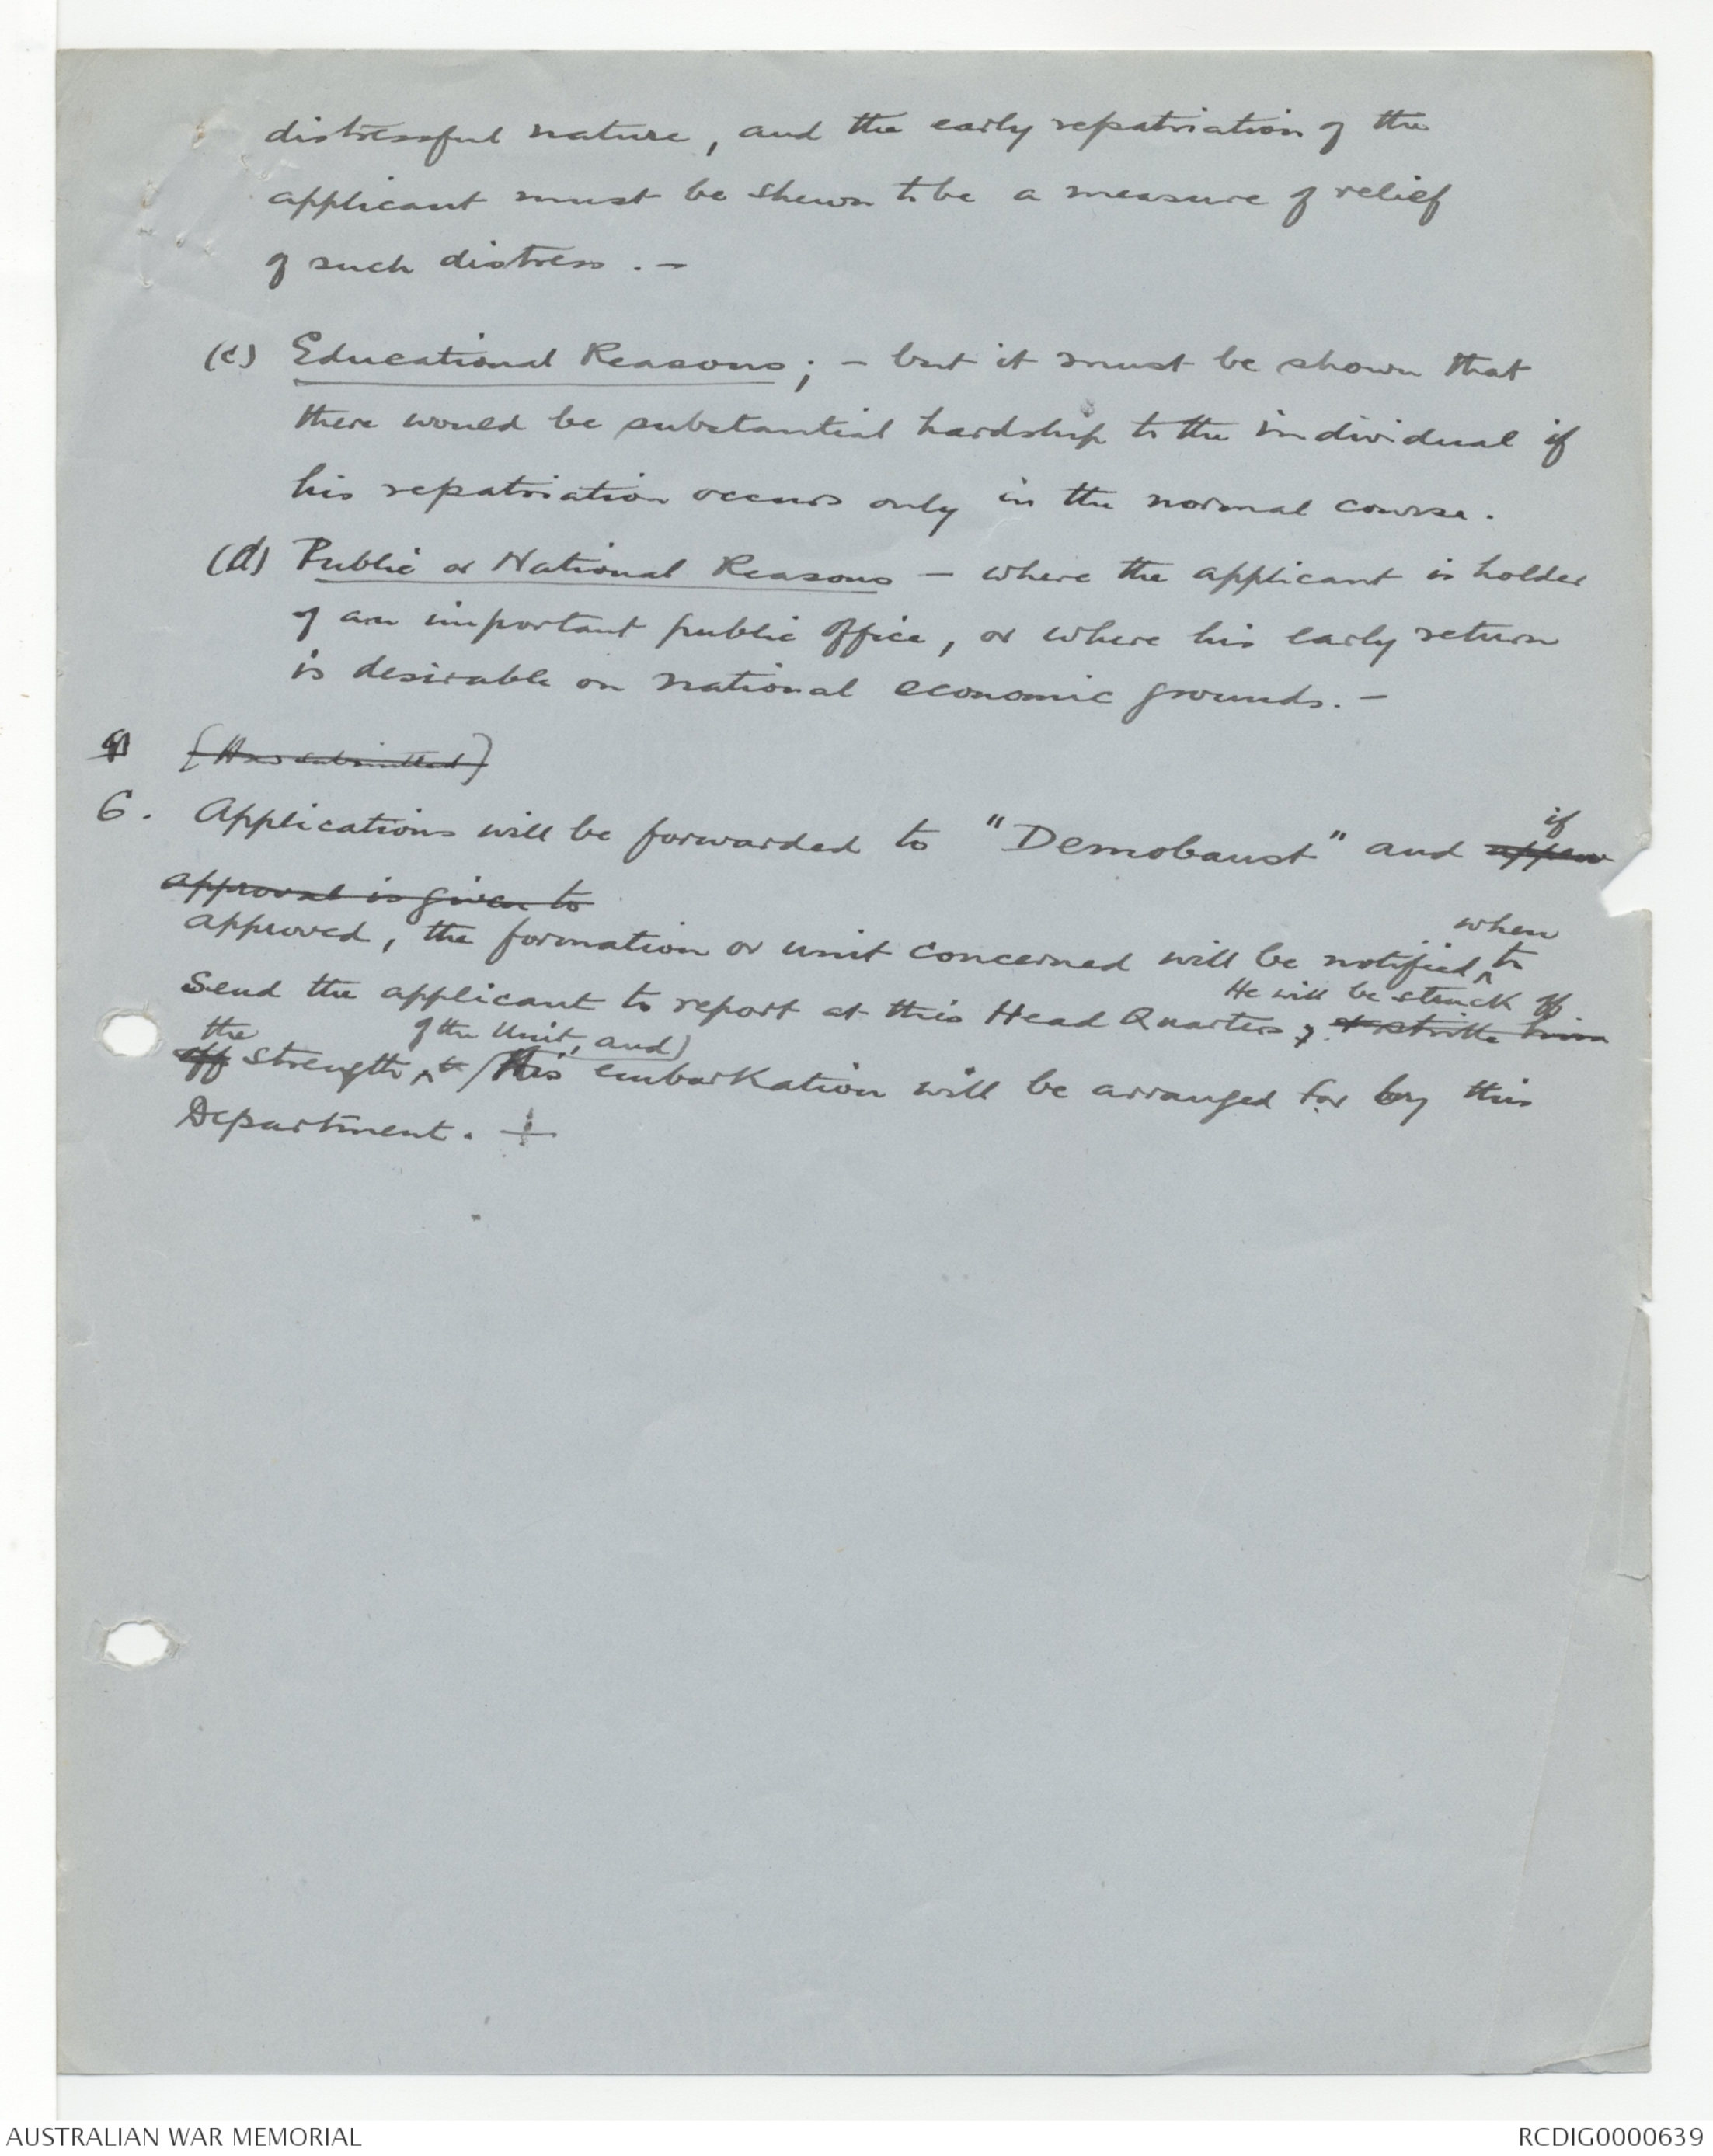 distressful nature, and the early repatriation of the
applicant must be shewn to be a measure of relief
of such distress. —
(c) Educational Reasons; — but it must be shown that
there would be substantial hardship to the individual if
his repatriation occurs only in the normal course.
(d) Public or National Reasons — where the applicant is holder
of an important public office, or where his early return
is desirable on national economic grounds. —
(As submitted)
if
6. Applications will be forwarded to "Demobaust" and
approval is given to
when
approved, the formation or unit concerned will be notified to
He will be struck off
send the applicant to report at this Head Quarters, & strike him
the of the Unit, and
off strength & His embarkation will be arranged for by this
Department.
AUSTRALIAN WAR MEMORIAL
RCDIG0000639